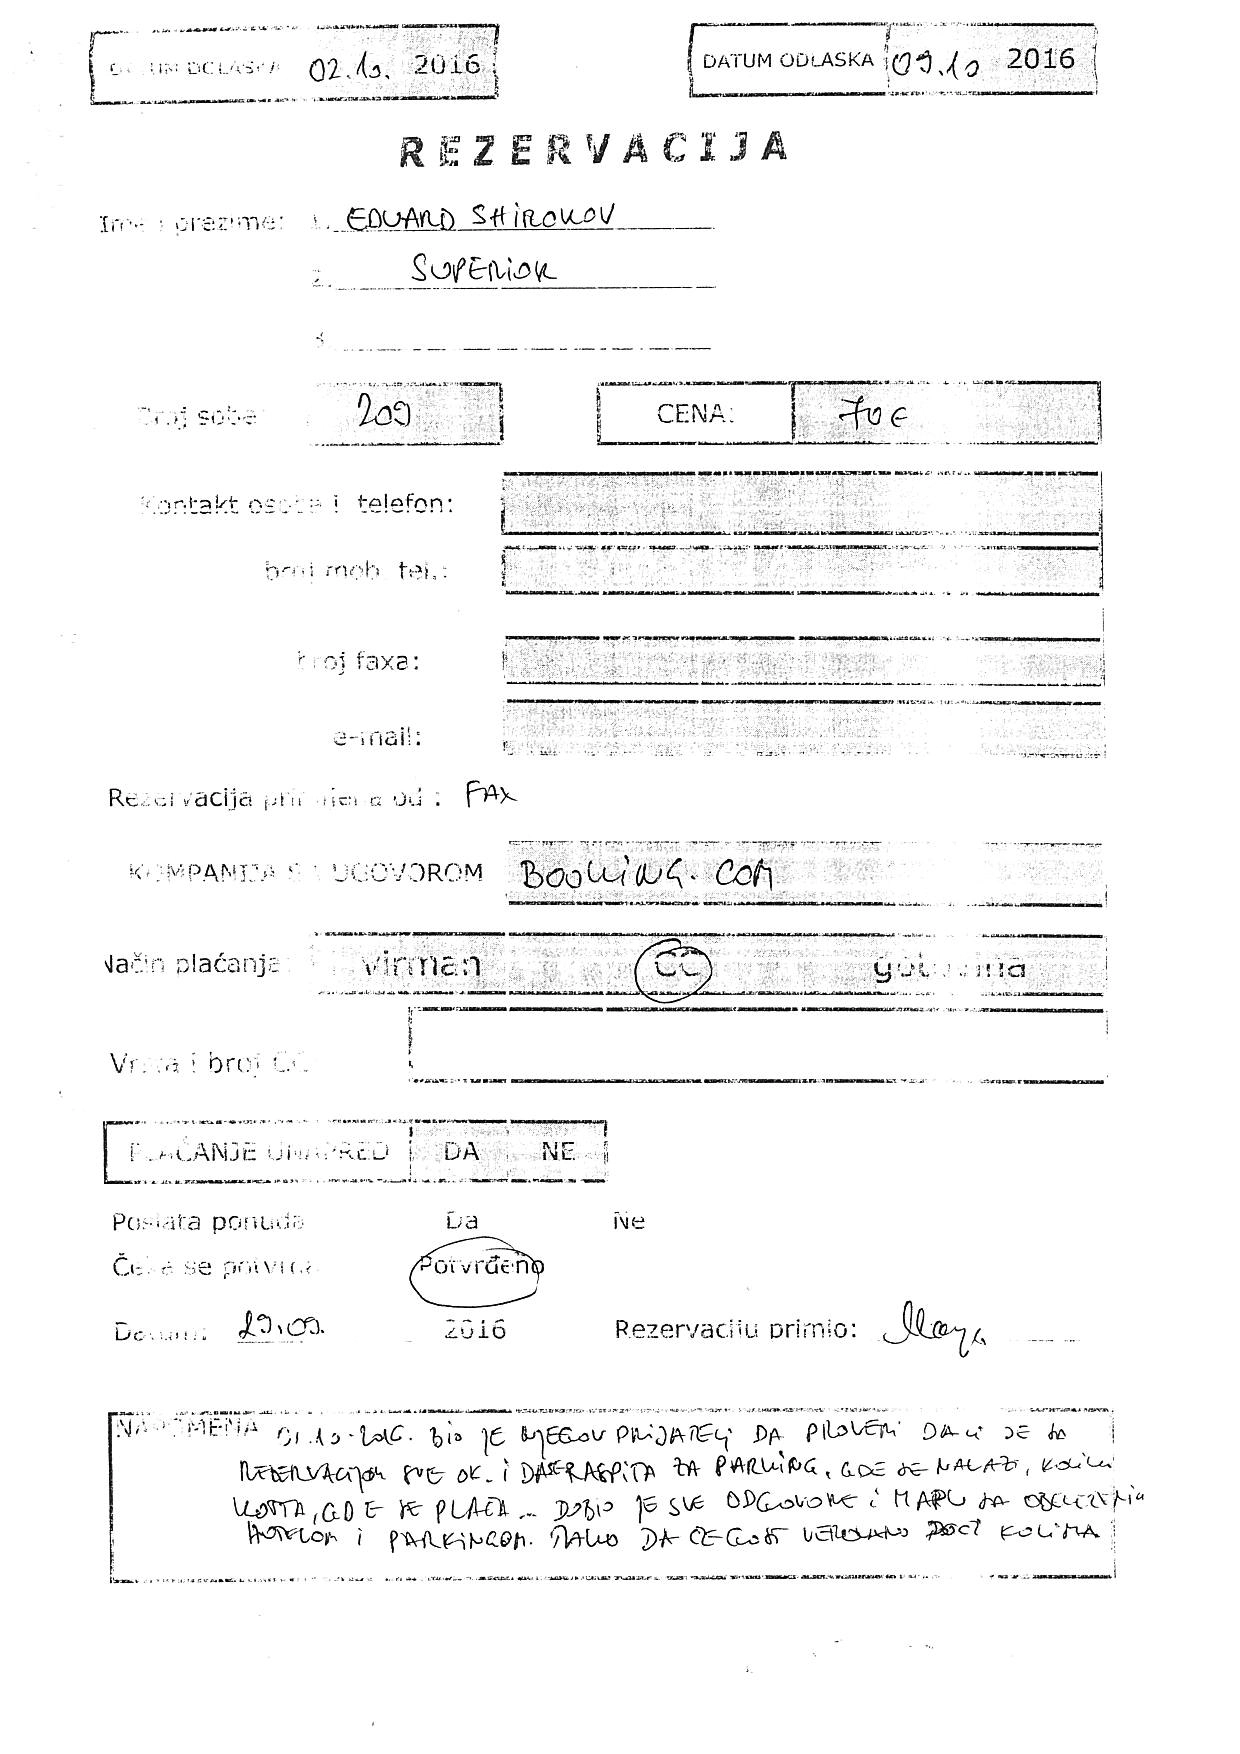 DATUM DOLASKA 02.10. 2016
DATUM ODLASKA 09.10 2016
REZERVACIJA
Ime i prezime: 1. EDUARD SHIROKOV
2. SUPERIOR
3.
Broj sobe 209 CENA: 70 €
Kontakt osoba i telefon:
broj mob. tel.:
broj faxa:
e-mail:
Rezervacija primljena od : FAX
KOMPANIJA SA UGOVOROM BOOKING.COM
Način plaćanja: virman CC gotovina
Vrsta i broj CC
PLAĆANJE UNAPRED DA NE
Poslata ponuda Da Ne
Čeka se potvrda Potvrđeno
Datum: 29.09. 2016 Rezervaciju primio: Maya
NAPOMENA 01.10.2016. BIO JE NJEGOV PRIJATELJ DA PROVERI DA LI JE SA
REZERVACIJOM SVE OK. I DA SE RASPITA ZA PARKING, GDE SE NALAZI, KOLIKO
KOSTA, GDE SE PLAĆA ... DOBIO JE SVE ODGOVORE I MAPU SA
HOTELOM I PARKINGOM. DA ĆE GOST VEROVATNO DOĆI KOLIMA